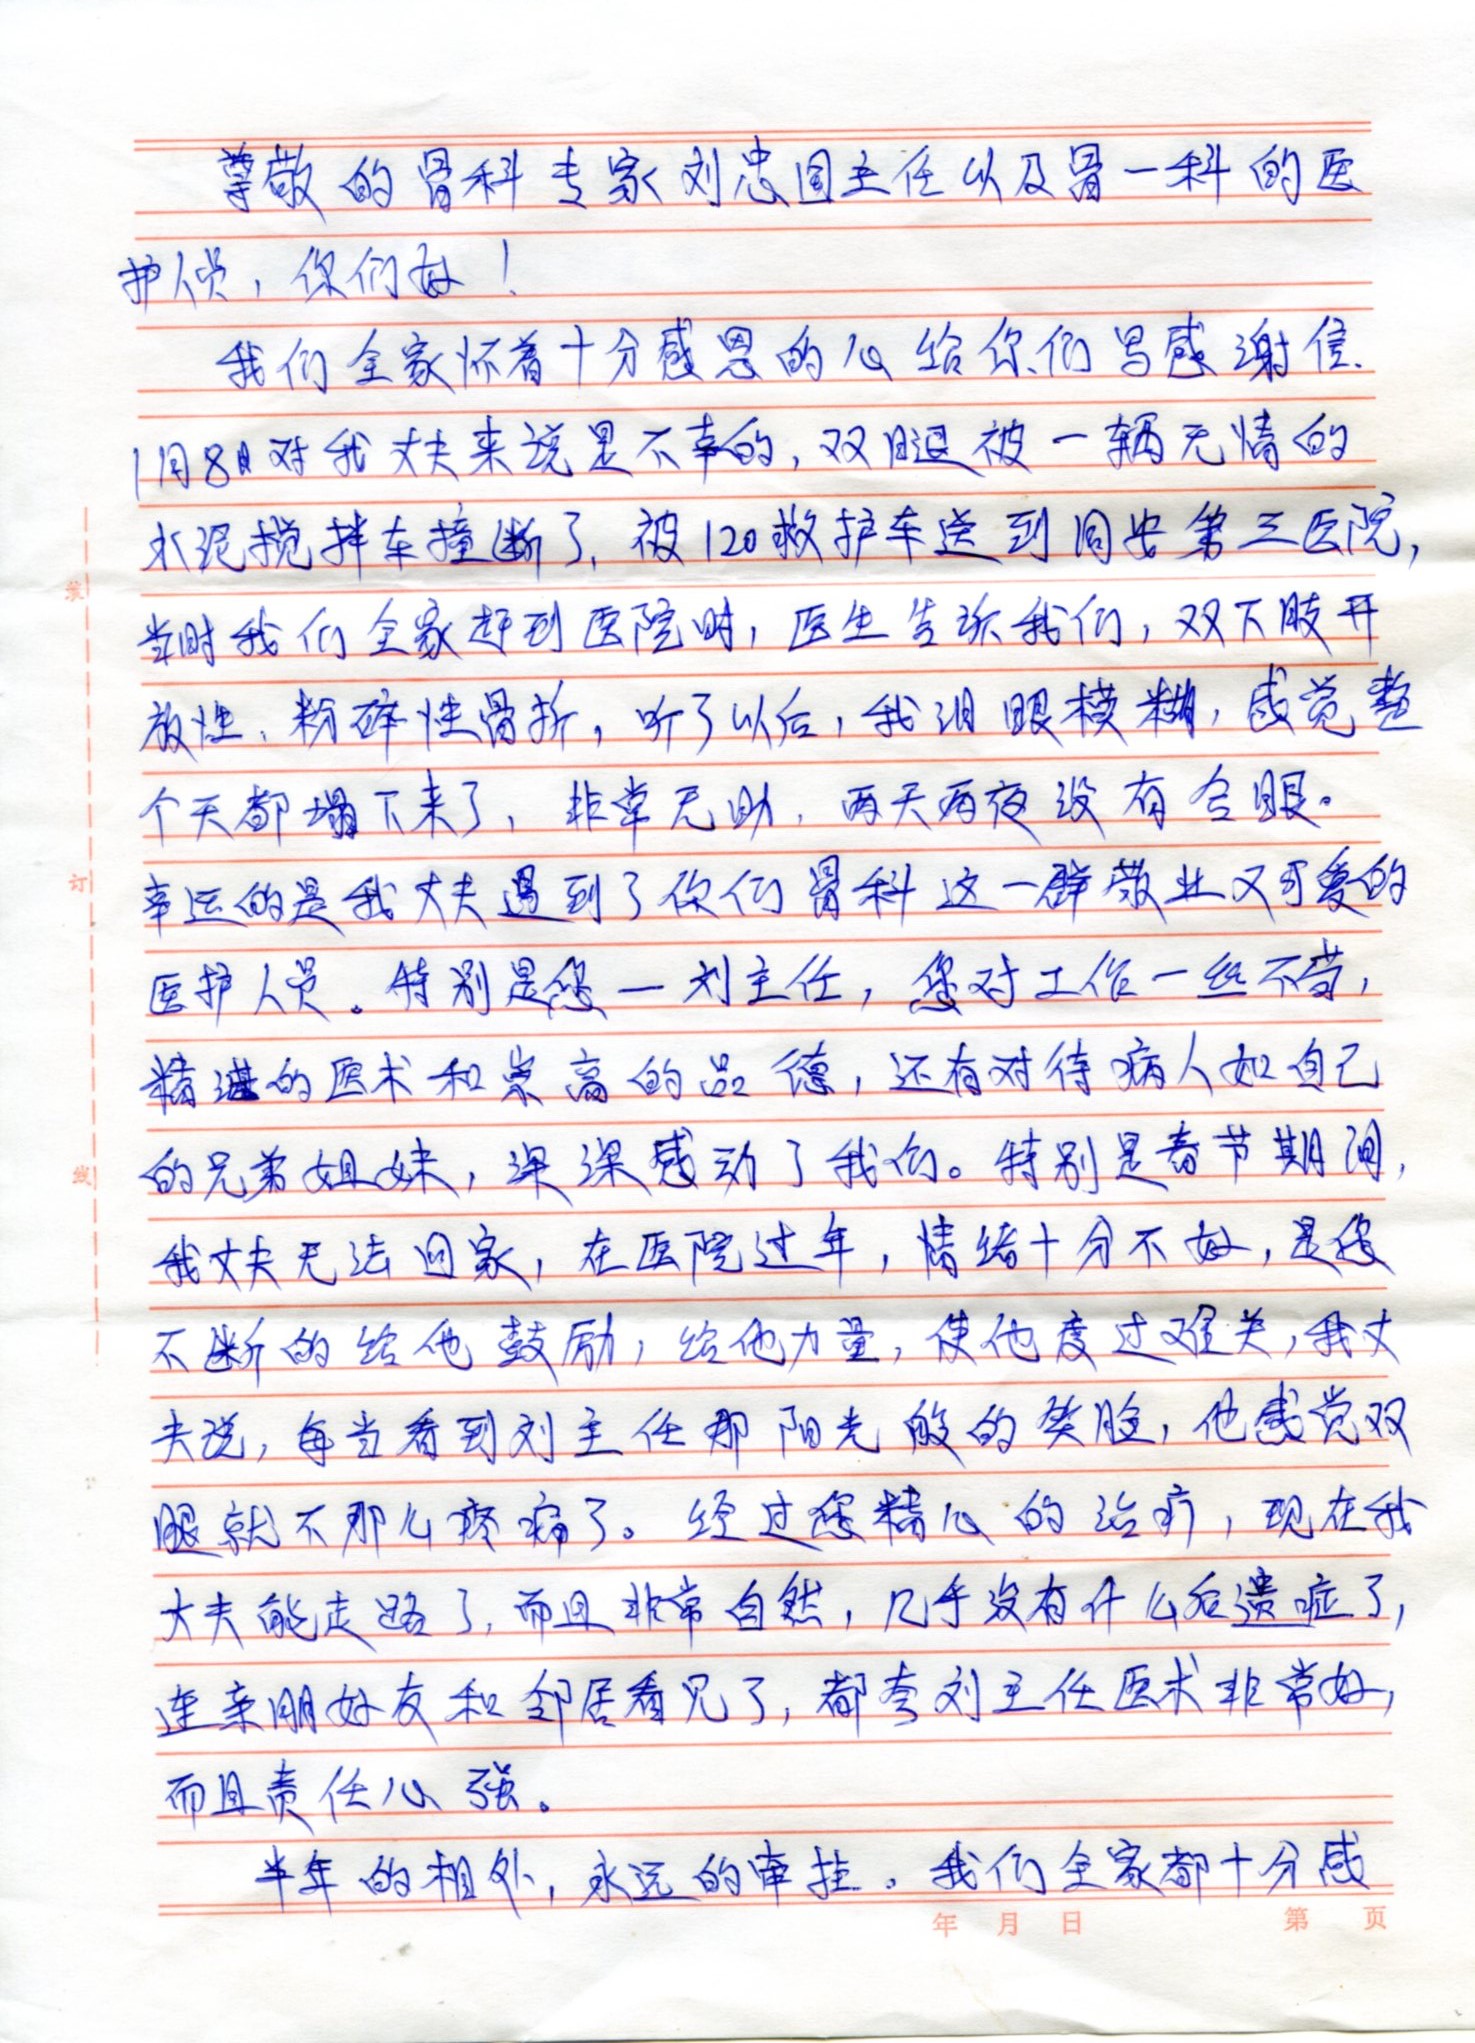 尊敬的骨科专家刘忠国主任以及骨一科的医
护人员，你们好！
我们全家怀着十分感恩的心给你们写感谢信.
1月8日对我丈夫来说是不幸的，双腿被一辆无情的
水泥搅拌车撞断了，被120救护车送到同安第三医院，
当时我们全家赶到医院时，医生告诉我们，双下肢开
放性、粉碎性骨折，听了以后，我泪眼模糊，感觉整
个天都塌下来了，非常无助，两天两夜没有合眼。
幸运的是我丈夫遇到了你们骨科这一群敬业又可爱的
医护人员。特别是您一刘主任，您对工作一丝不苟，
精湛的医术和崇高的品德，还有对待病人如自己
的兄弟姐妹，深深感动了我们。特别是春节期间，
我丈夫无法回家，在医院过年，情绪十分不好，是您
不断的给他鼓励，给他力量，使他度过难关，我丈
夫说，每当看到刘主任那阳光般的笑脸，他感觉双
腿就不那么疼痛了。经过您精心的治疗，现在我
丈夫能走路了，而且非常自然，几乎没有什么后遗症了，
连亲朋好友和邻居看见了，都夸刘主任医术非常好，
而且责任心强。
半年的相处，永远的牵挂。我们全家都十分感
年 月 日 第 页
装
订
线